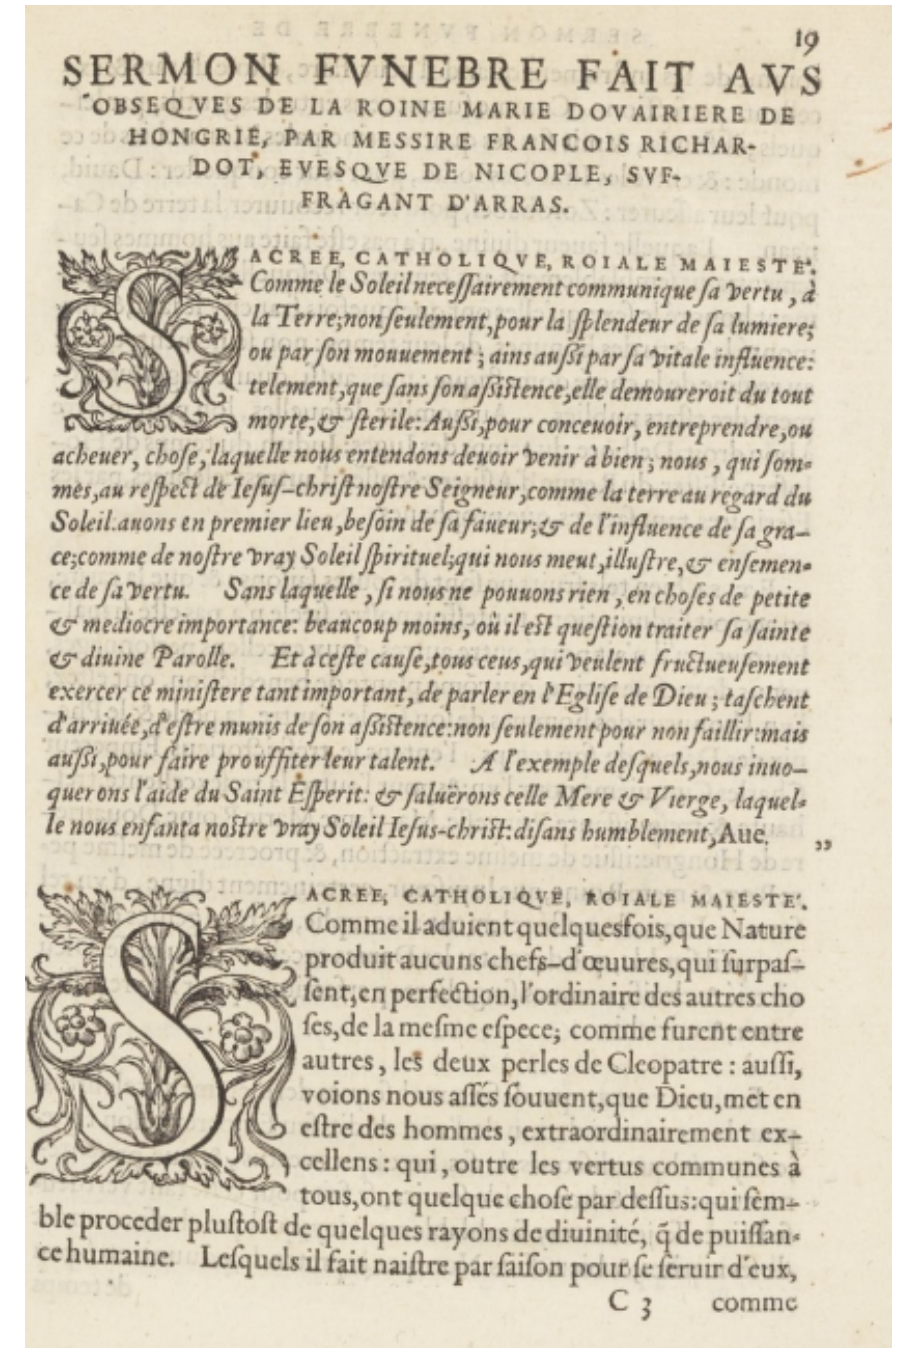 19
SERMON FVNEBRE FAIT AVS
OBSEQVES DE LA ROINE MARIE DOVAIRIERE DE
HONGRIE, PAR MESSIRE FRANCOIS RICHAR-
DOT, EVESQVE DE NICOPLE, SVF-
FRAGANT D'ARRAS.
SACREE, CATHOLIQVE, ROIALE MAIESTE'.
Comme le Soleil necessairement communique sa vertu, à
la Terre; non seulement, pour la splendeur de sa lumiere;
ou par son mouuement; ains aussi par sa vitale influence:
telement, que sans son assistence, elle demoureroit du tout
morte, & sterile: Aussi, pour conceuoir, entreprendre, ou
acheuer, chose, laquelle nous entendons deuoir venir à bien; nous, qui som-
mes, au respect de Iesus-christ nostre Seigneur, comme la terre au regard du
Soleil. auons en premier lieu, besoin de sa faueur; & de l'influence de sa gra-
ce; comme de nostre vray Soleil spirituel; qui nous meut, illustre, & ensemen-
ce de sa vertu. Sans laquelle, si nous ne pouuons rien, en choses de petite
& mediocre importance: beaucoup moins, où il est question traiter sa sainte
& diuine Parolle. Et à ceste cause, tous ceus, qui veulent fructueusement
exercer ce ministere tant important, de parler en l'Eglise de Dieu; taschent
d'arriuée, d'estre munis de son assistence: non seulement pour non faillir: mais
aussi, pour faire prouffiter leur talent. A l'exemple desquels, nous inuo-
querons l'aide du Saint Esperit: & saluërons celle Mere & Vierge, laquel-
le nous enfanta nostre vray Soleil Iesus-christ: disans humblement, Aue. „
SACREE, CATHOLIQVE, ROIALE MAIESTE'.
Comme il aduient quelquesfois, que Nature
produit aucuns chefs-d'œuures, qui surpas-
sent, en perfection, l'ordinaire des autres cho
ses, de la mesme espece; comme furent entre
autres, les deux perles de Cleopatre: aussi,
voions nous assés souuent, que Dieu, met en
estre des hommes, extraordinairement ex-
cellens: qui, outre les vertus communes à
tous, ont quelque chose par dessus: qui sem-
ble proceder plustost de quelques rayons de diuinité, q̃ de puissan-
ce humaine. Lesquels il fait naistre par saison pour se seruir d'eux,
C 3 comme